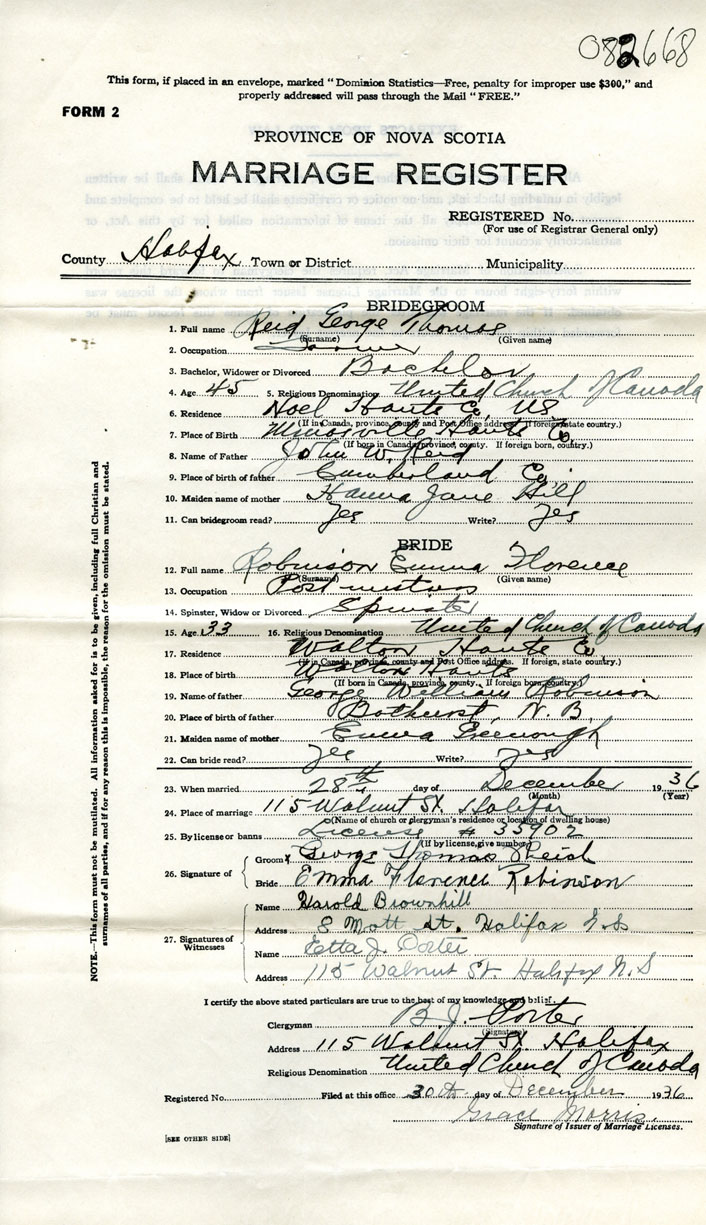 082668
This form, if placed in an envelope, marked "Dominion Statistics—Free, penalty for improper use $300," and
properly addressed will pass through the Mail "FREE."
FORM 2
PROVINCE OF NOVA SCOTIA
MARRIAGE REGISTER
REGISTERED No.
(For use of Registrar General only)
County Halifax Town or District Municipality
BRIDEGROOM
1. Full name Reid George Thomas
(Surname) (Given name)
2. Occupation Farmer
3. Bachelor, Widower or Divorced Bachelor
4. Age 45 5. Religious Denomination United Church of Canada
6. Residence Noel Hants Co, NS
(If in Canada, province, county and Post Office address. If foreign, state country.)
7. Place of Birth Minasville Hants Co
(If born in Canada, province, county. If foreign born, country.)
8. Name of Father John W. Reid
9. Place of birth of father Cumberland Co.
10. Maiden name of mother Hanna Jane Hill
11. Can bridegroom read? Yes Write? Yes
BRIDE
12. Full name Robinson Emma Florence
(Surname) (Given name)
13. Occupation Post mistress
14. Spinster, Widow or Divorced Spinster
15. Age 33 16. Religious Denomination United Church of Canada
17. Residence Walton Hants Co
(If in Canada, province, county and Post Office address. If foreign, state country.)
18. Place of birth Walton Hants
(If born in Canada, province, county. If foreign born, country.)
19. Name of father George William Robinson
20. Place of birth of father Bathurst, N. B.
21. Maiden name of mother Emma Greenough
22. Can bride read? Yes Write? Yes
23. When married 28th day of December 1936
(Month) (Year)
24. Place of marriage 115 Walnut St. Halifax
(Name of church or clergyman's residence or location of dwelling house)
25. By license or banns License # 35902
(If by license, give number)
26. Signature of
Groom x George Thomas Reid
Bride Emma Florence Robinson
27. Signatures of Witnesses
Name Harold Brownhill
Address 8 Mott St. Halifax N.S
Name Etta J. Porter
Address 115 Walnut St. Halifax N.S
I certify the above stated particulars are true to the best of my knowledge and belief.
Clergyman B. J. Porter
(Signature)
Address 115 Walnut St. Halifax
Religious Denomination United Church of Canada
Registered No. Filed at this office 30th day of December 1936
Grace Morris
Signature of Issuer of Marriage Licenses.
[SEE OTHER SIDE]
NOTE.—This form must not be mutilated. All information asked for is to be given, including full Christian and
surnames of all parties, and if for any reason this is impossible, the reason for the omission must be stated.